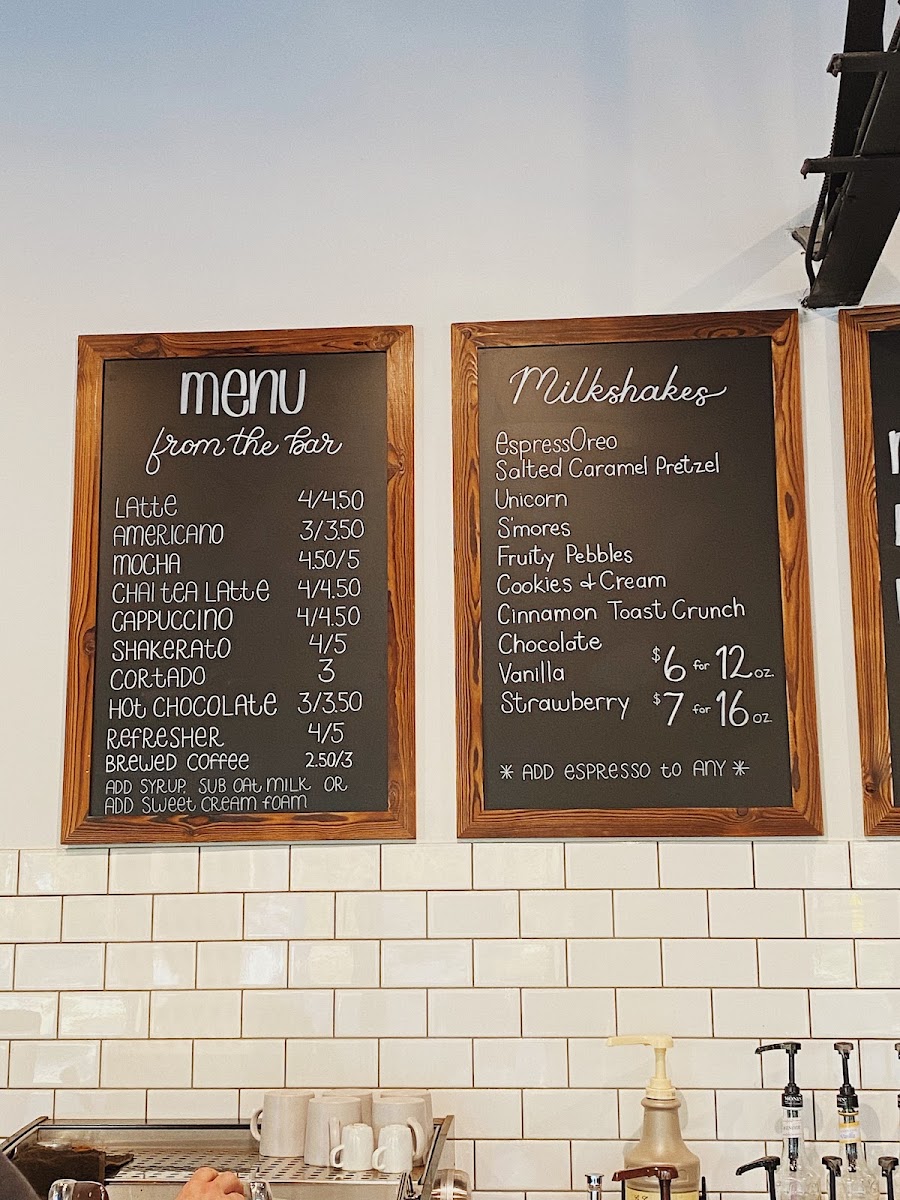 menu
from the bar
LAtte 4/4.50
AMERICANO 3/3.50
MOCHA 4.50/5
CHAI teA LAtte 4/4.50
CAPPUCCINO 4/4.50
SHAKERATO 4/5
CORtADO 3
HOt CHOCOLAte 3/3.50
ReFResHeR 4/5
BREWED COFFEE 2.50/3
ADD SYRUP, SUB OAt MILK OR
ADD SWeet CREAM FOAM
Milkshakes
espressOreo
Salted Caramel Pretzel
Unicorn
S'mores
Fruity Pebbles
Cookies & Cream
Cinnamon Toast Crunch
Chocolate
Vanilla $6 for 12 oz.
Strawberry $7 for 16 oz
* ADD espresso to ANY *